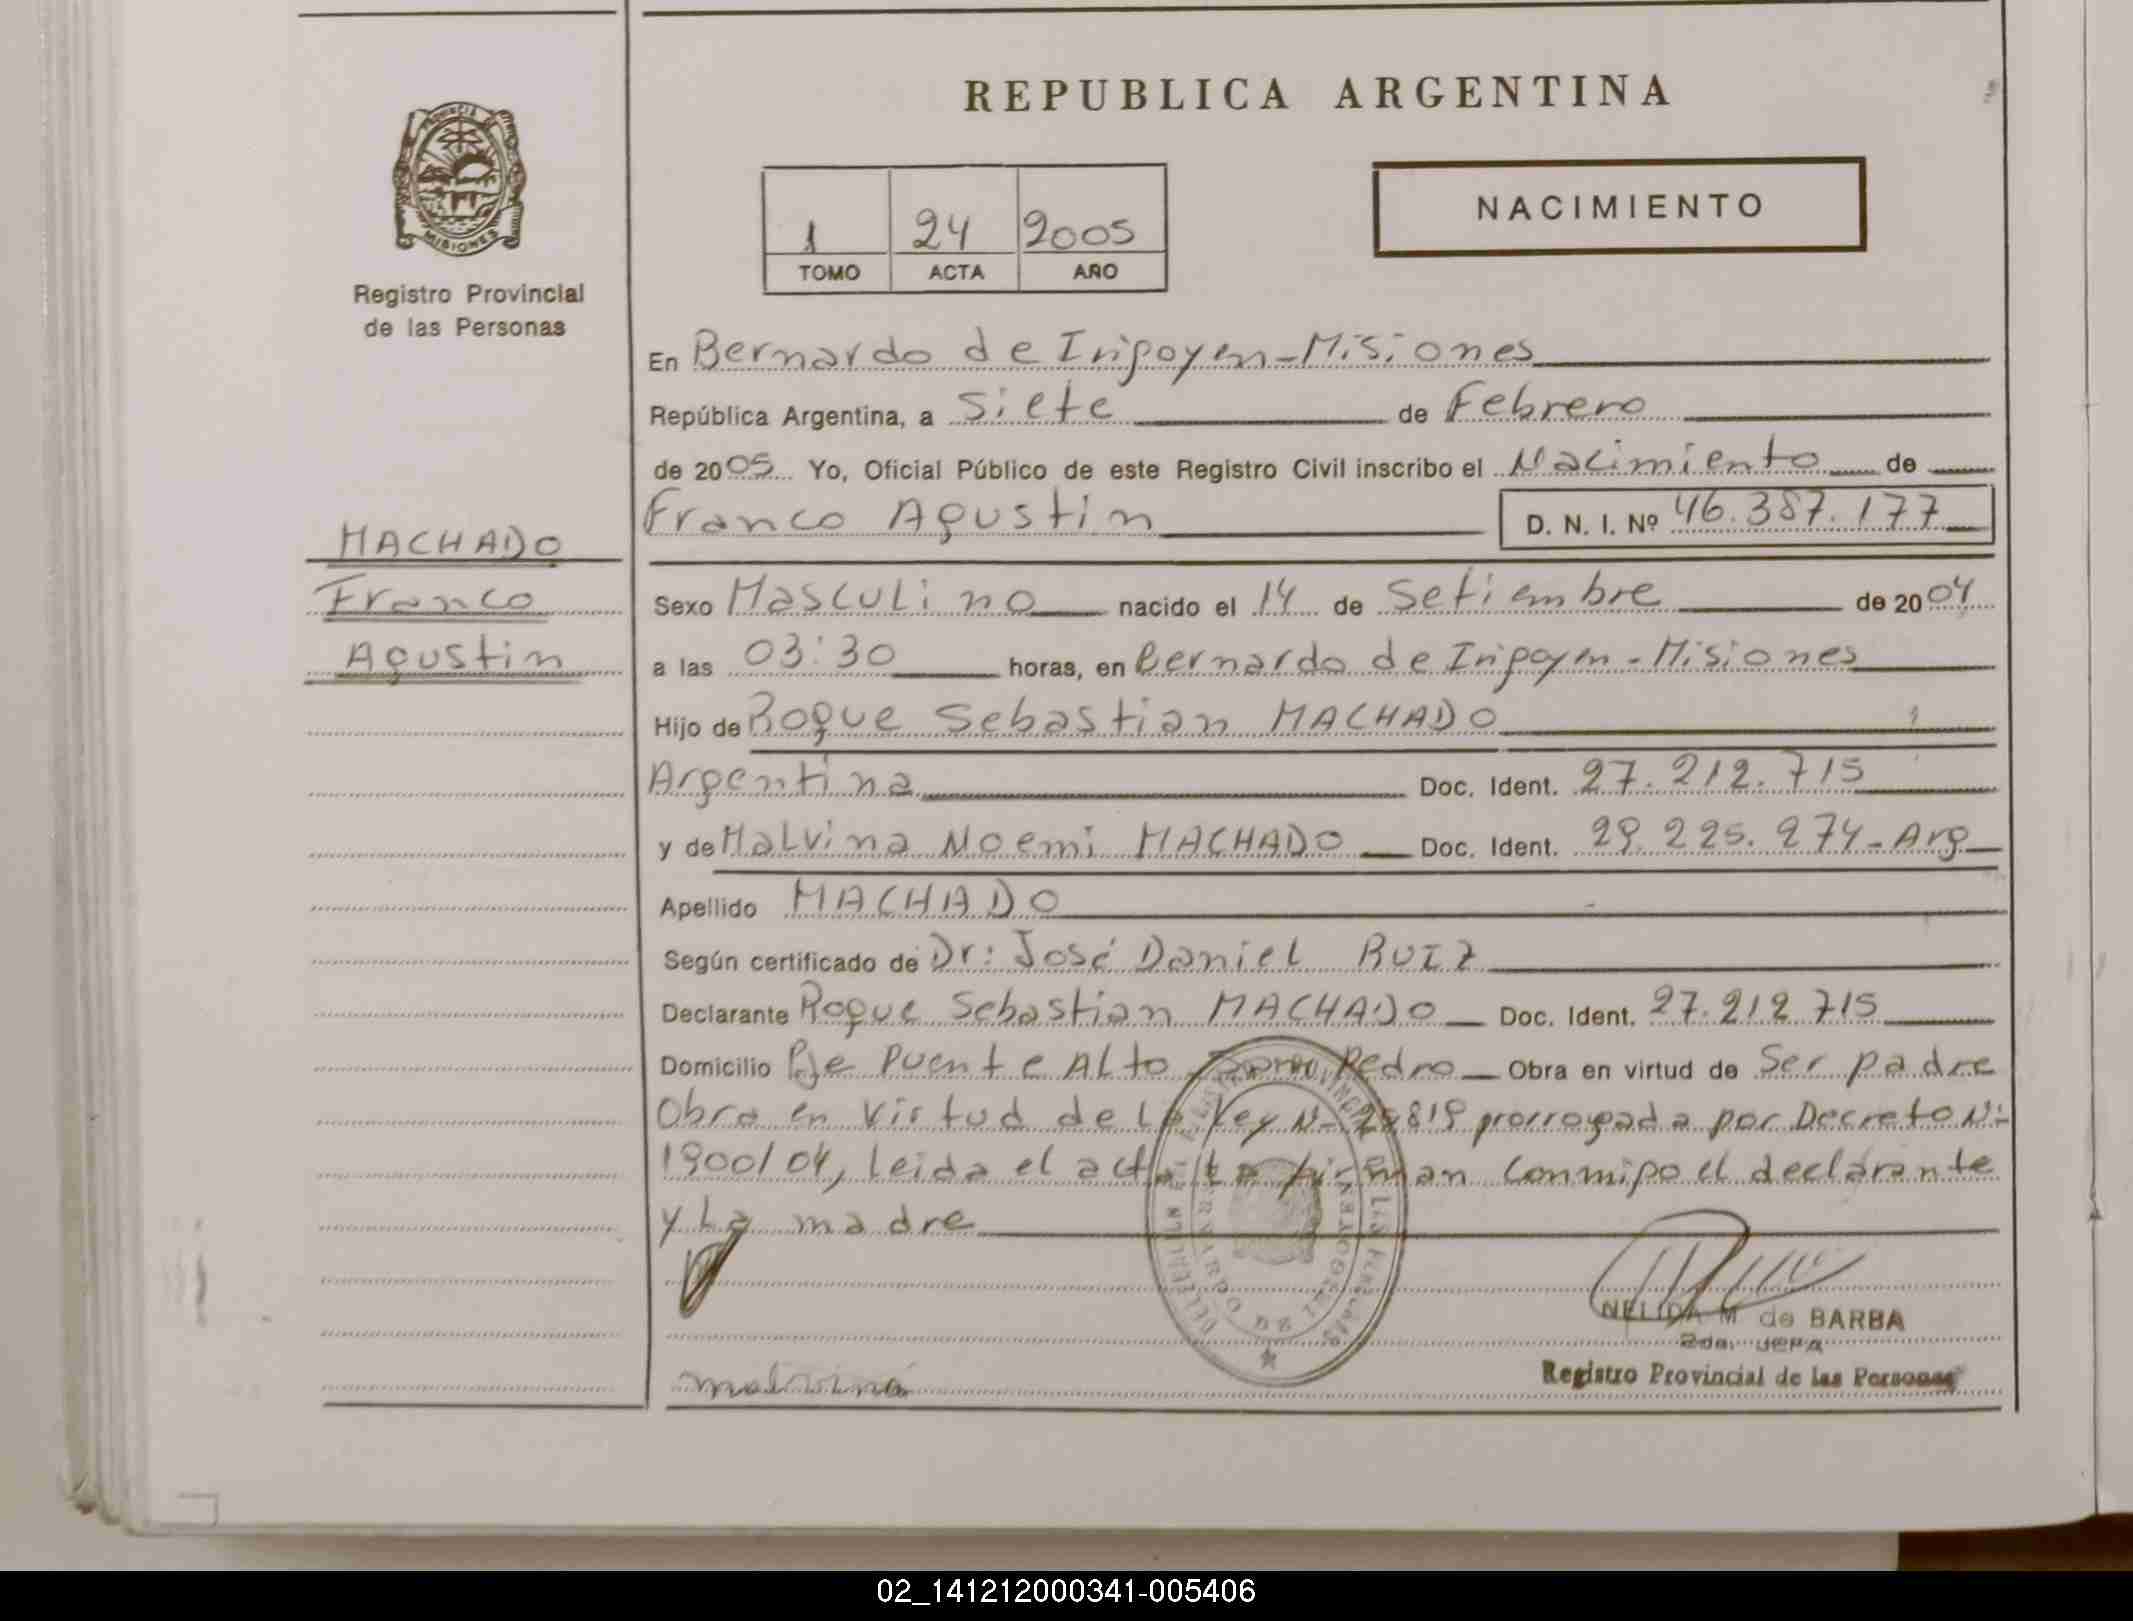 REPUBLICA ARGENTINA
PROVINCIA DE
MISIONES
Registro Provincial
de las Personas
1 24 2005
TOMO ACTA AÑO
NACIMIENTO
En Bernardo de Irigoyen-Misiones
República Argentina, a Siete de Febrero
de 2005 Yo, Oficial Público de este Registro Civil inscribo el Nacimiento de
Franco Agustin D. N. I. Nº 46.387.177
MACHADO
Franco
Agustin
Sexo Masculino nacido el 14 de Setiembre de 2004
a las 03:30 horas, en Bernardo de Irigoyen-Misiones
Hijo de Roque Sebastian MACHADO
Argentina Doc. Ident. 27.212.715
y de Malvina Noemi MACHADO Doc. Ident. 29.225.274-Arg
Apellido MACHADO
Según certificado de Dr: José Daniel RUIZ
Declarante Roque Sebastian MACHADO Doc. Ident. 27.212.715
Domicilio Pje Puente Alto Pedro Obra en virtud de Ser padre
Obra en virtud de la Ley N- 819 prorrogada por Decreto N:
1900/04, Leida el acta La firman Conmigo el declarante
y La madre
NELIDA M de BARBA
2da. JEFA
malvina
Registro Provincial de las Personas
02_141212000341-005406